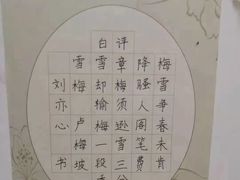 梅雪争春未肯
降骚人阁笔费
评章梅须逊雪三分
白雪却输梅一段香
雪梅 卢梅坡
刘亦心 书